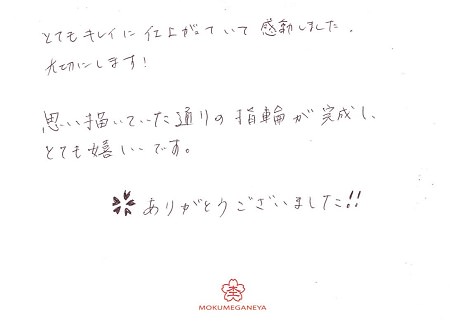 とてもキレイに仕上がっていて感動しました.
大切にします!
思い描いていた通りの指輪が完成し、
とても嬉しいです。
ありがとうございました!!
杢
MOKUMEGANEYA